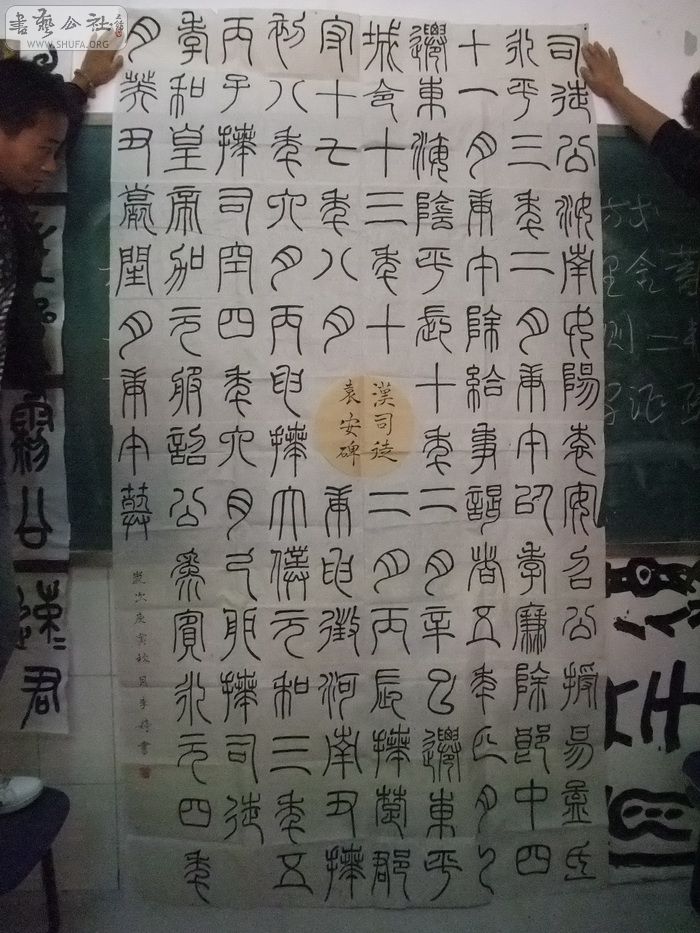 書藝公社
WWW.SHUFA.ORG
司徒公汝南女陽袁安召公授易孟氏
永平三年二月庚午以孝廉除郎中四
十一月庚午除給事謁者五年四月乙
遷東海陰平長十年二月辛巳遷東平
城令十三年十二月丙辰拜楚郡
守十七年八月庚申徵河南尹拜
初八年六月丙申拜太僕元和三年五
丙子拜司空四年六月己卯拜司徒
孝和皇帝加元服詔公為賓永元四年
月癸丑薨閏月庚午葬
漢司徒
袁安碑
歲次庚寅秋月李書